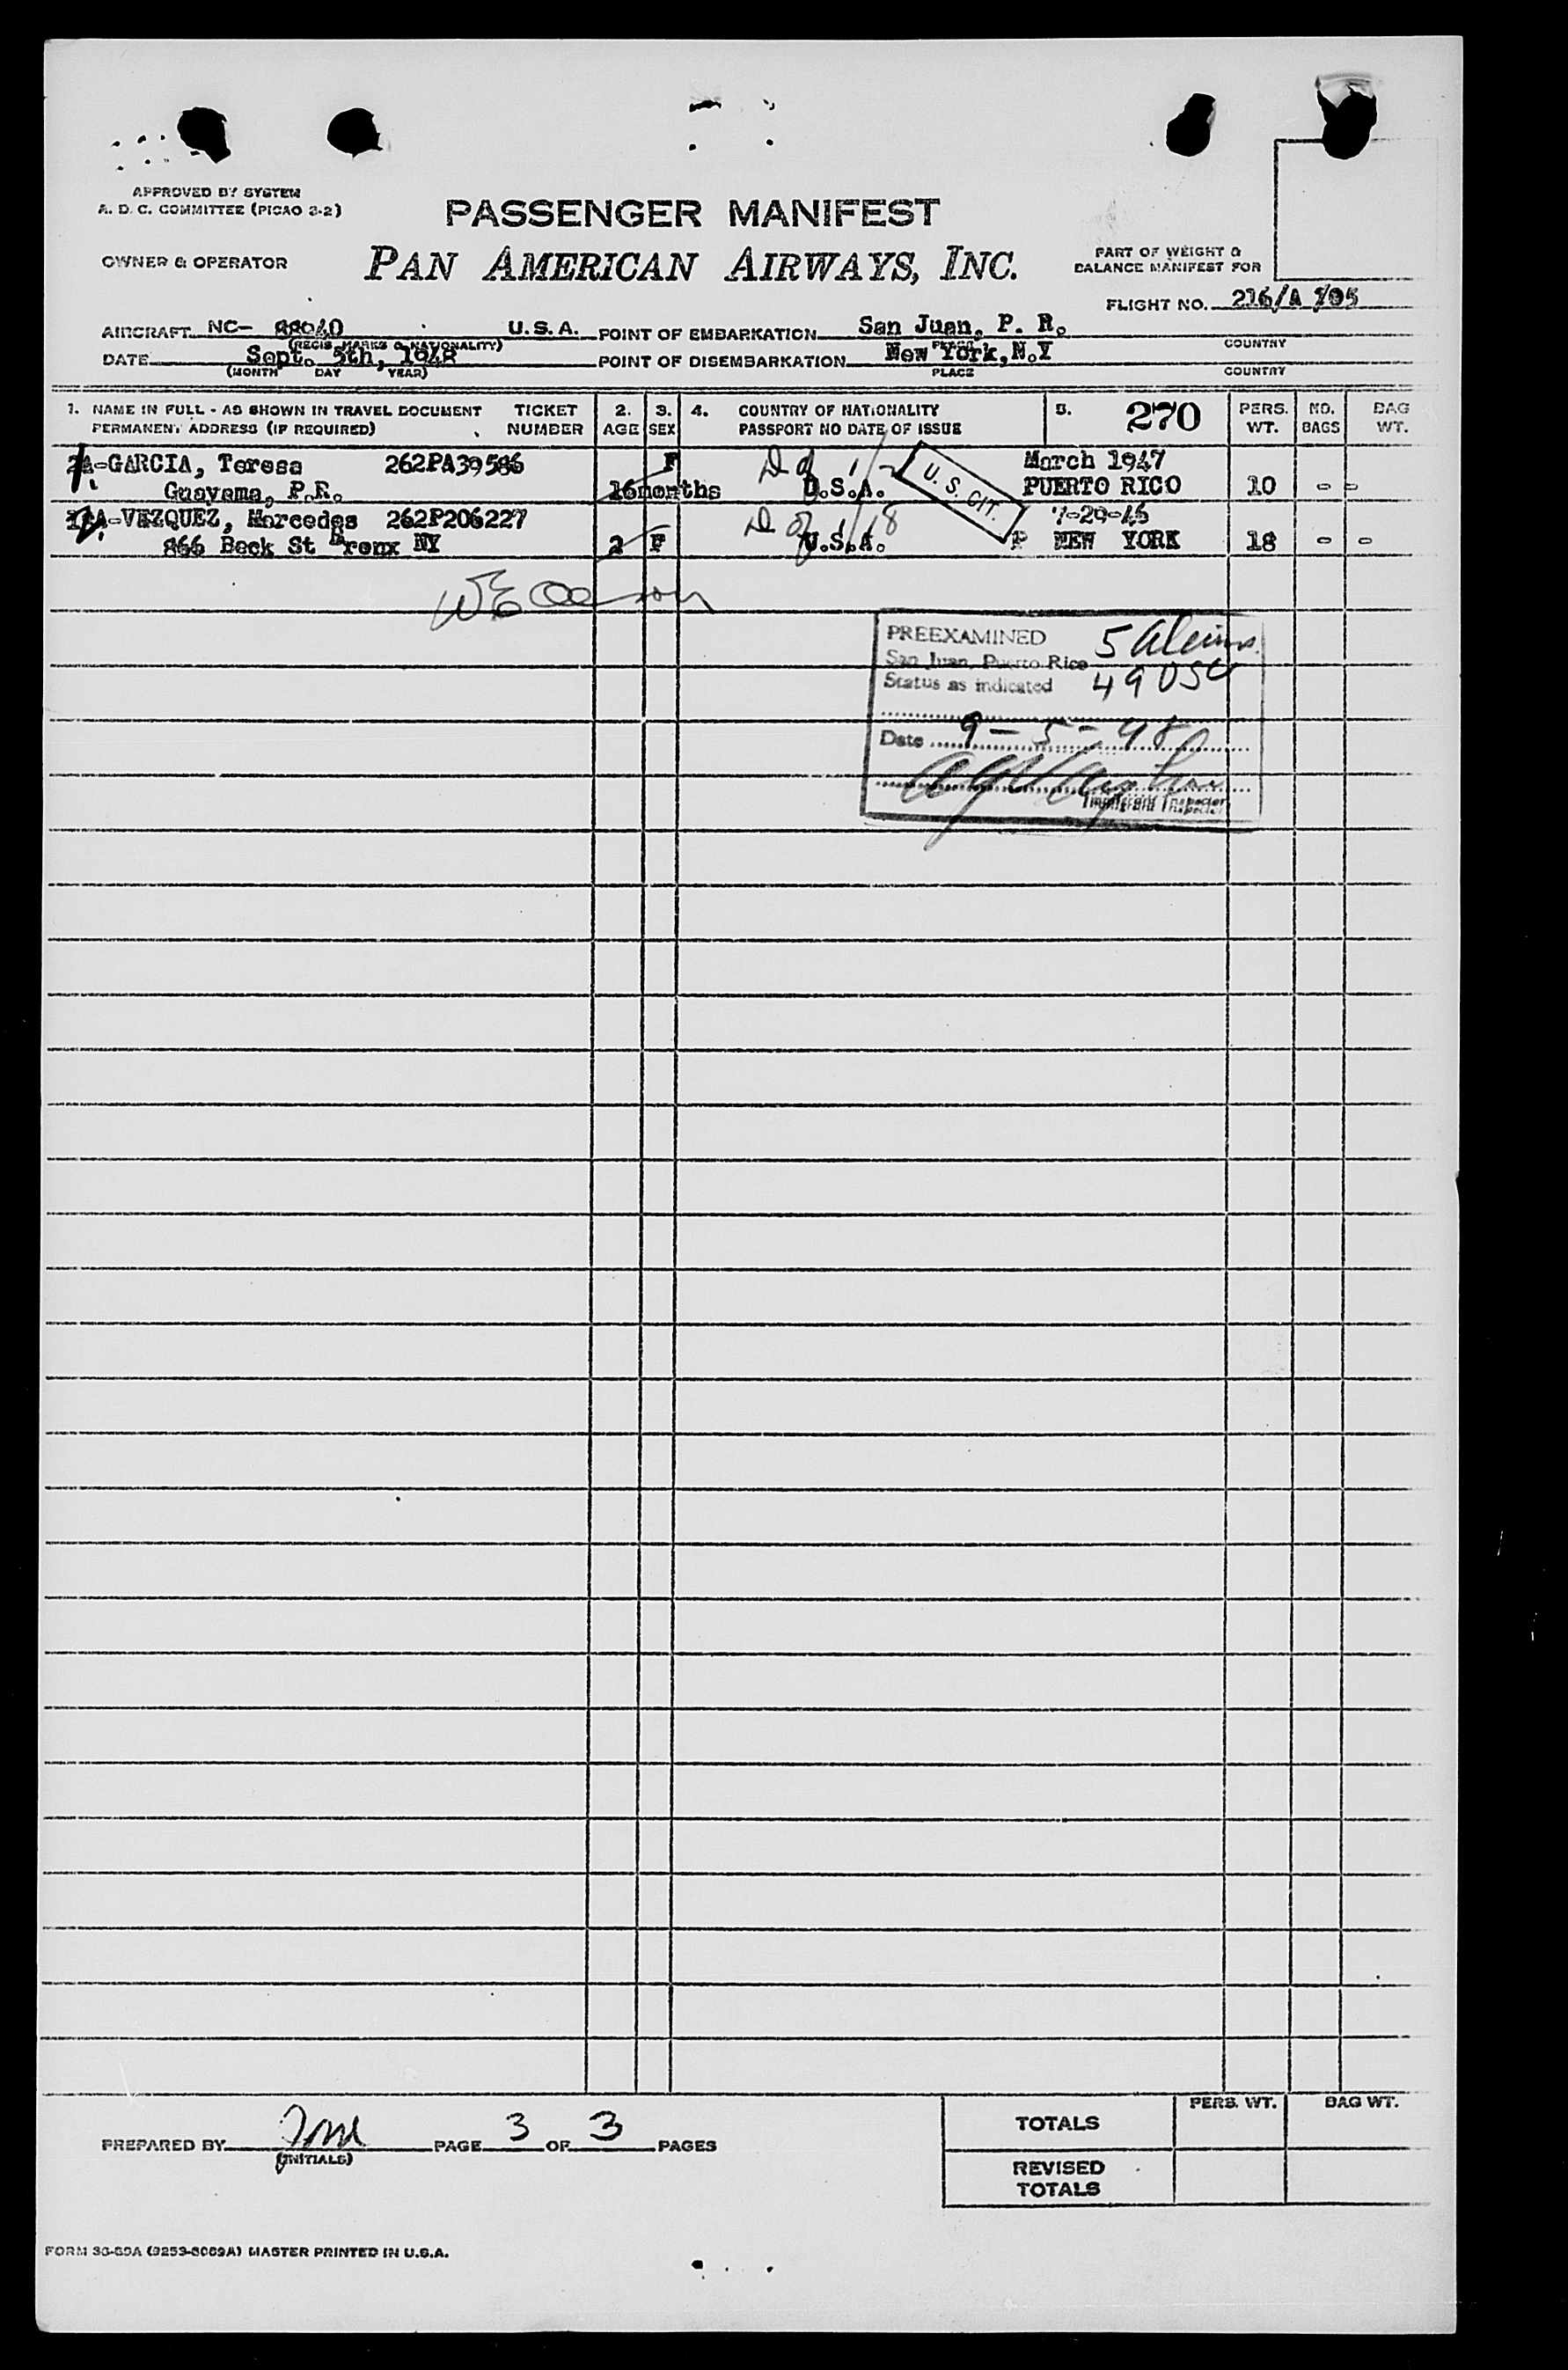 APPROVED BY SYSTEM
A. D. C. COMMITTEE (PICAO 3-2)
PASSENGER MANIFEST
OWNER & OPERATOR
PAN AMERICAN AIRWAYS, INC.
PART OF WEIGHT &
BALANCE MANIFEST FOR
FLIGHT NO. 216/A
AIRCRAFT NC- 88940 U.S.A. POINT OF EMBARKATION San Juan, P. R.
(REGIS. MARKS & NATIONALITY) PLACE COUNTRY
DATE Sept. 5th, 1948 POINT OF DISEMBARKATION New York, N.Y
(MONTH DAY YEAR) PLACE COUNTRY
1. NAME IN FULL - AS SHOWN IN TRAVEL DOCUMENT TICKET 2. 3. 4. COUNTRY OF NATIONALITY 5. 270 PERS. NO. BAG
PERMANENT ADDRESS (IF REQUIRED) NUMBER AGE SEX PASSPORT NO DATE OF ISSUE WT. BAGS WT.
GARCIA, Teresa 262PA39586 F D of 1/2 March 1947
Guayama, P.R. 16months U.S.A. U. S. CIT. PUERTO RICO 10 - -
VAZQUEZ, Mercedes 262P206227 D of 1/18 7-29-46
866 Beck St Bronx NY 2 F U.S.A. P NEW YORK 18 - -
PREEXAMINED 5 aliens
San Juan, Puerto Rico
Status as indicated 49 USC
Date 9-5-48
Immigrant Inspector
PREPARED BY PAGE 3 OF 3 PAGES
(INITIALS)
PERS. WT. BAG WT.
TOTALS
REVISED
TOTALS
FORM 36-89A (9253-8089A) MASTER PRINTED IN U.S.A.